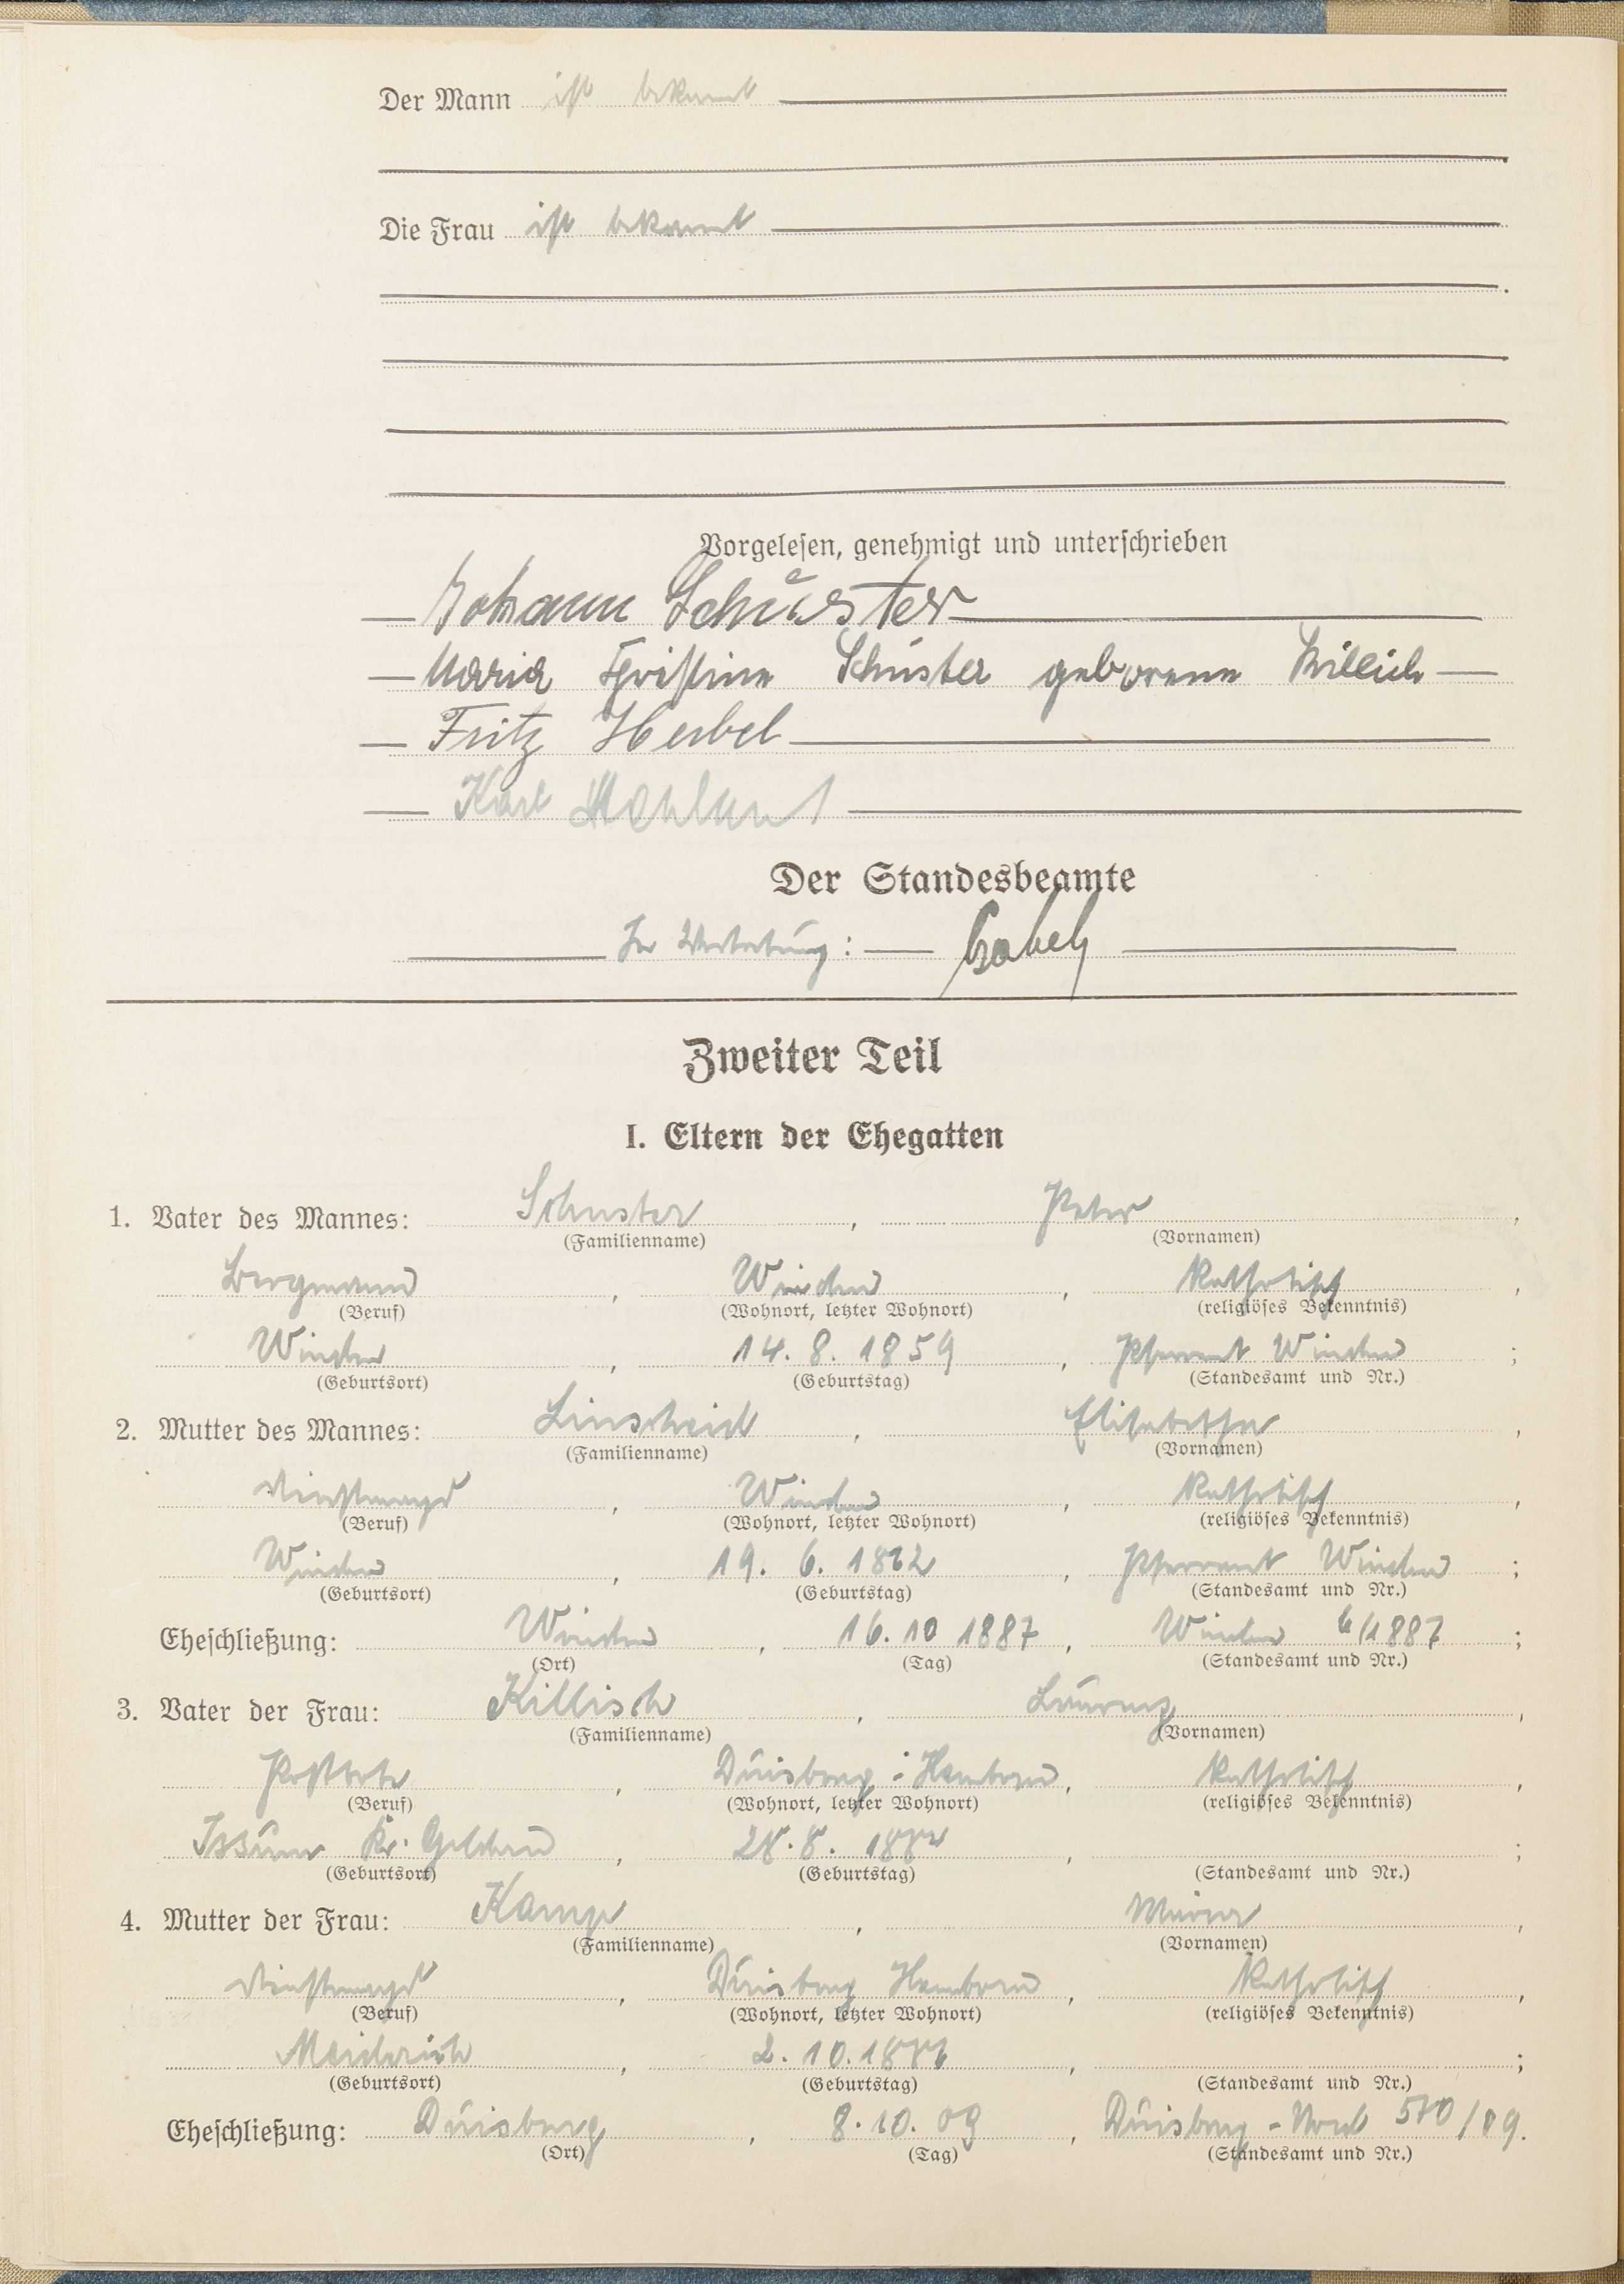 Der Mann ist bekannt
Die Frau ist bekannt
Vorgelesen, genehmigt und unterschrieben
Johann Schuster
Maria Christine Schuster geborene Killich
Fritz Herbel
Karl
Der Standesbeamte
In Vertretung:
Zweiter Teil
I. Eltern der Ehegatten
1. Vater des Mannes: Schuster, Peter,
(Familienname) (Vornamen)
Bergmann, Winden, katholisch,
(Beruf) (Wohnort, letzter Wohnort) (religiöses Bekenntnis)
Winden, 14. 8. 1859, Pfarramt Winden;
(Geburtsort) (Geburtstag) (Standesamt und Nr.)
2. Mutter des Mannes: Linscheid, Elisabetha,
(Familienname) (Vornamen)
Dienstmagd, Winden, katholisch,
(Beruf) (Wohnort, letzter Wohnort) (religiöses Bekenntnis)
Winden, 19. 6. 1862, Pfarramt Winden;
(Geburtsort) (Geburtstag) (Standesamt und Nr.)
Eheschließung: Winden, 16. 10 1887, Winden 6/1887;
(Ort) (Tag) (Standesamt und Nr.)
3. Vater der Frau: Killich, Laurenz,
(Familienname) (Vornamen)
Postbote, Duisburg-Hamborn, katholisch,
(Beruf) (Wohnort, letzter Wohnort) (religiöses Bekenntnis)
Issum Kr. Geldern, 28. 8.;
(Geburtsort) (Geburtstag) (Standesamt und Nr.)
4. Mutter der Frau: Kamp, Maria,
(Familienname) (Vornamen)
Dienstmagd, Duisburg Hamborn, katholisch,
(Beruf) (Wohnort, letzter Wohnort) (religiöses Bekenntnis)
Meiderich, 2. 10.;
(Geburtsort) (Geburtstag) (Standesamt und Nr.)
Eheschließung: Duisburg, 8. 10. 09, Duisburg-Nord 570/09.
(Ort) (Tag) (Standesamt und Nr.)